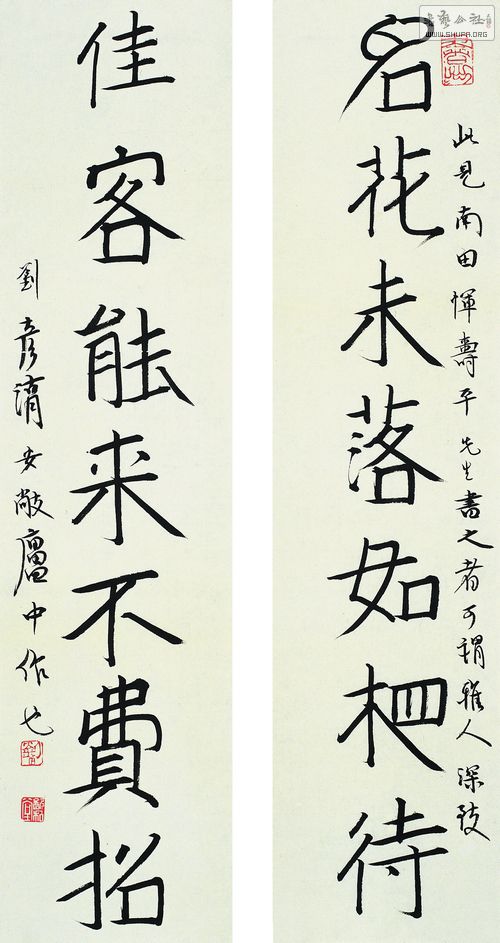 名花未落如相待
此見南田惲壽平先生書之者可謂雅人深致
佳客能来不費招
劉彦湖安敞廬中作也
书艺公社
WWW.SHUFA.ORG